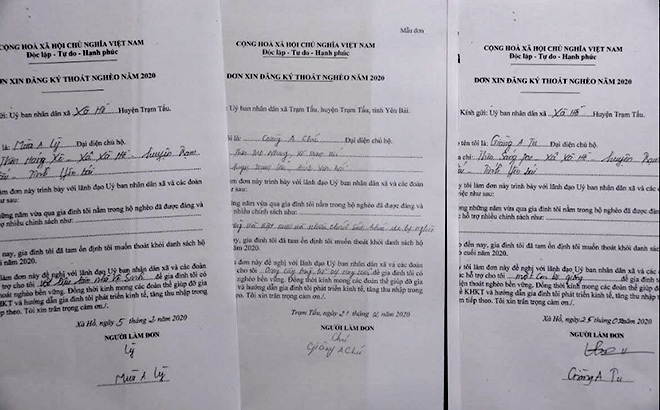 CỘNG HOÀ XÃ HỘI CHỦ NGHĨA VIỆT NAM
Độc lập - Tự do - Hạnh phúc
ĐƠN XIN ĐĂNG KÝ THOÁT NGHÈO NĂM 2020
i: Uỷ ban nhân dân xã Xà Hồ Huyện Trạm Tấu.
là: Mùa A Lý Đại diện chủ hộ.
Xà Hồ - huyện Trạm
Tấu - Tỉnh Yên Bái
làm đơn này trình bày với lãnh đạo Uỷ ban nhân dân xã và các đoàn
như sau:
những năm vừa qua gia đình tôi nằm trong hộ nghèo đã được đảng và
trợ nhiều chính sách như:
nay, gia đình tôi đã tạm ổn định tôi muốn thoát khỏi danh sách hộ
năm 2020.
làm đơn này đề nghị với lãnh đạo Uỷ ban nhân dân xã và các đoàn
trợ cho tôi để gia đình tôi có
nghèo bền vững. Đồng thời kính mong các đoàn thể giúp đỡ
KHKT và hướng dẫn gia đình tôi phát triển kinh tế, tăng thu nhập trong
theo. Tôi xin trân trọng cảm ơn./.
Xà Hồ, ngày 5 tháng 2 năm 2020
NGƯỜI LÀM ĐƠN
Lý
Mùa A Lý
Mẫu đơn
CỘNG HOÀ XÃ HỘI CHỦ NGHĨA VIỆT NAM
Độc lập - Tự do - Hạnh phúc
ĐƠN XIN ĐĂNG KÝ THOÁT NGHÈO NĂM 2020
gửi: Uỷ ban nhân dân xã Trạm Tấu, huyện Trạm Tấu, tỉnh Yên Bái.
tôi là: Giàng A Chú Đại diện chủ hộ.
làm đơn này trình bày với lãnh đạo Uỷ ban nhân dân xã và các đoàn
như sau:
những năm vừa qua gia đình tôi nằm trong hộ nghèo đã được đảng và
nhiều chính sách như:
nay, gia đình tôi đã tạm ổn định tôi muốn thoát khỏi danh sách hộ
năm 2020.
làm đơn này đề nghị với lãnh đạo Uỷ ban nhân dân xã và các đoàn
trợ cho tôi để gia đình tôi có
thoát nghèo bền vững. Đồng thời kính mong các đoàn thể giúp đỡ
KHKT và hướng dẫn gia đình tôi phát triển kinh tế, tăng thu nhập trong
tiếp theo. Tôi xin trân trọng cảm ơn./.
Trạm Tấu, ngày 21 tháng năm 2020
NGƯỜI LÀM ĐƠN
Chú
Giàng A Chú
CỘNG HOÀ XÃ HỘI CHỦ NGHĨA VIỆT NAM
Độc lập - Tự do - Hạnh phúc
ĐƠN XIN ĐĂNG KÝ THOÁT NGHÈO NĂM 2020
Kính gửi: Uỷ ban nhân dân xã Xà Hồ Huyện Trạm Tấu.
tên tôi là: Giàng A Tu Đại diện chủ hộ.
chỉ: Xã Xà Hồ - huyện Trạm
Tấu - Tỉnh Yên Bái
làm đơn này trình bày với lãnh đạo Uỷ ban nhân dân xã và các đoàn
như sau:
những năm vừa qua gia đình tôi nằm trong hộ nghèo đã được đảng và
hỗ trợ nhiều chính sách như:
đến nay, gia đình tôi đã tạm ổn định tôi muốn thoát khỏi danh sách hộ
cuối năm 2020.
tôi làm đơn này đề nghị với lãnh đạo Uỷ ban nhân dân xã và các đoàn
hỗ trợ cho tôi một con bò giống để gia đình tôi có
thoát nghèo bền vững. Đồng thời kính mong các đoàn thể giúp đỡ
KHKT và hướng dẫn gia đình tôi phát triển kinh tế, tăng thu nhập trong
tiếp theo. Tôi xin trân trọng cảm ơn./.
Xà Hồ, ngày 25 tháng năm 2020
NGƯỜI LÀM ĐƠN
Giàng A Tu